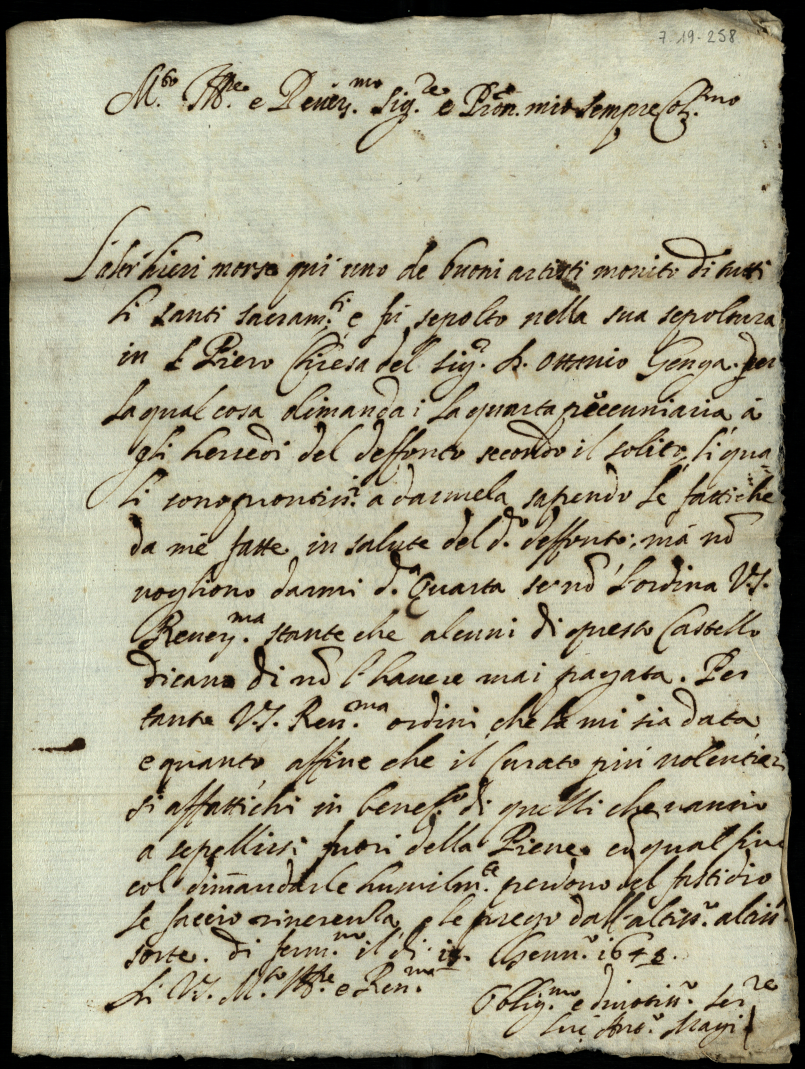 7-19-258
M.to Ill.re e Rever.mo Sig.re e Pron. mio sempre Col.mo
L'altr'hieri morse quì uno de buoni artisti monito di tutti
li santi sacram.ti e fù sepolto nella sua sepoltura
in S. Piero Chiesa del Sig.r D. Ottavio Genga. per
la qual cosa dimandai la quarta peccuniaria à
gli heredi del deffonto secondo il solito, li qua
li sono prontiss.i a darmela sapendo le fattiche
da me fatte in salute del d.o deffonto; mà nō
vogliono darmi d.a Quarta se nō l'ordina V.S.
Rever.ma stante che alcuni di questo Castello
dicano di nō l'havere mai pagata. Per
tanto V.S. Rev.ma ordini che la mi sia data,
e quanto affine che il Curato più volentieri
si affattichi in benef.o di quelli che vanno
a sepellirsi fuori della Pieve. cō qual fine
col dimandarle humilm.te perdono del fastidio
le faccio riverenza, e le prego dall'altiss.o
sorte. di il dì Genn.o 164
Di V.S. M.to Ill.re e Rev.ma
Oblig.mo e divotiss.o Ser.re
Ant.o Magi